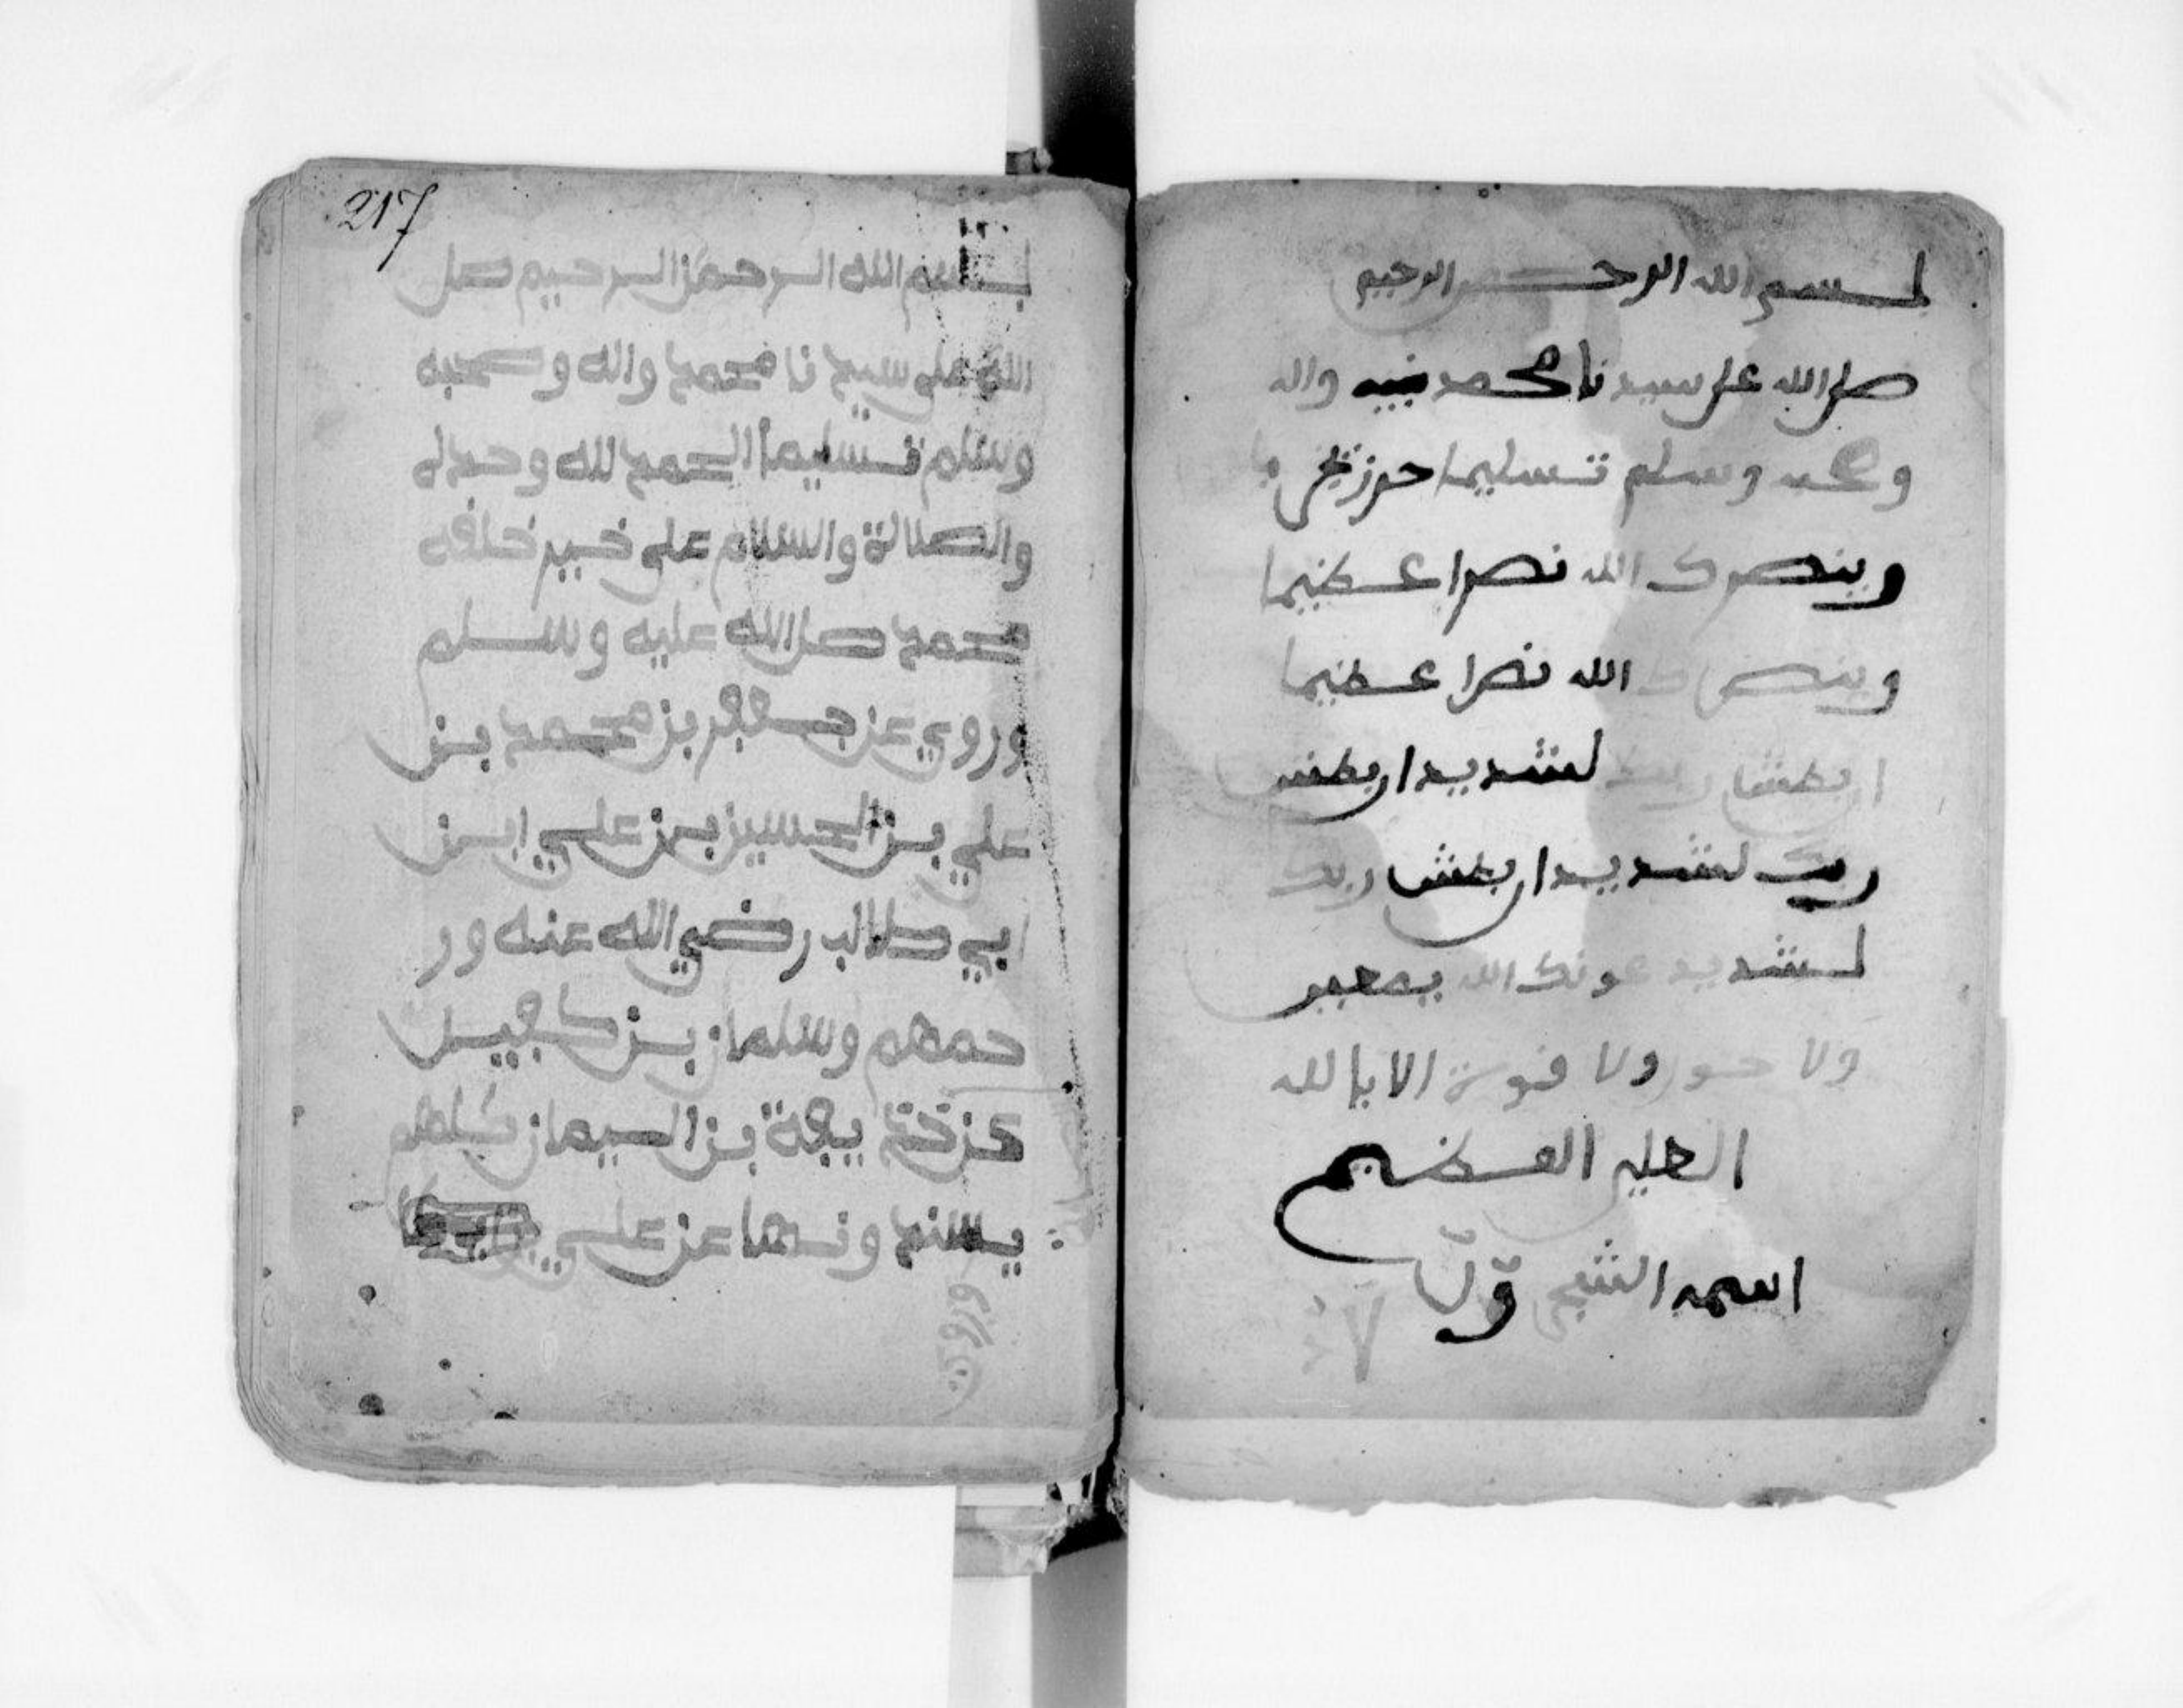 بسم الله الرحمن الرحيم
صلى الله على سيدنا محمد نبيه واله
وصحبه وسلم تسليما حرز
وينصرك الله نصرا عظيما
وينصرك الله نصرا عظيما
ان بطش ربك لشديد ان بطش
ربك لشديد ان بطش ربك
لشديد عونك الله يمعين
ولا حول ولا قوة الا بالله
العلي العظيم
اسمه الشيخ
217
بسم الله الرحمن الرحيم صل
الله على سيدنا محمد واله وصحبه
وسلم تسليما الحمد لله وحده
والصلاة والسلام على خير خلقه
محمد صلى الله عليه وسلم
وروي عن جعفر بن محمد بن
علي بن الحسين بن علي ابن
ابي طالب رضي الله عنه ور
حمهم وسلمان بن
عن بن كلهم
عن علي
وروي